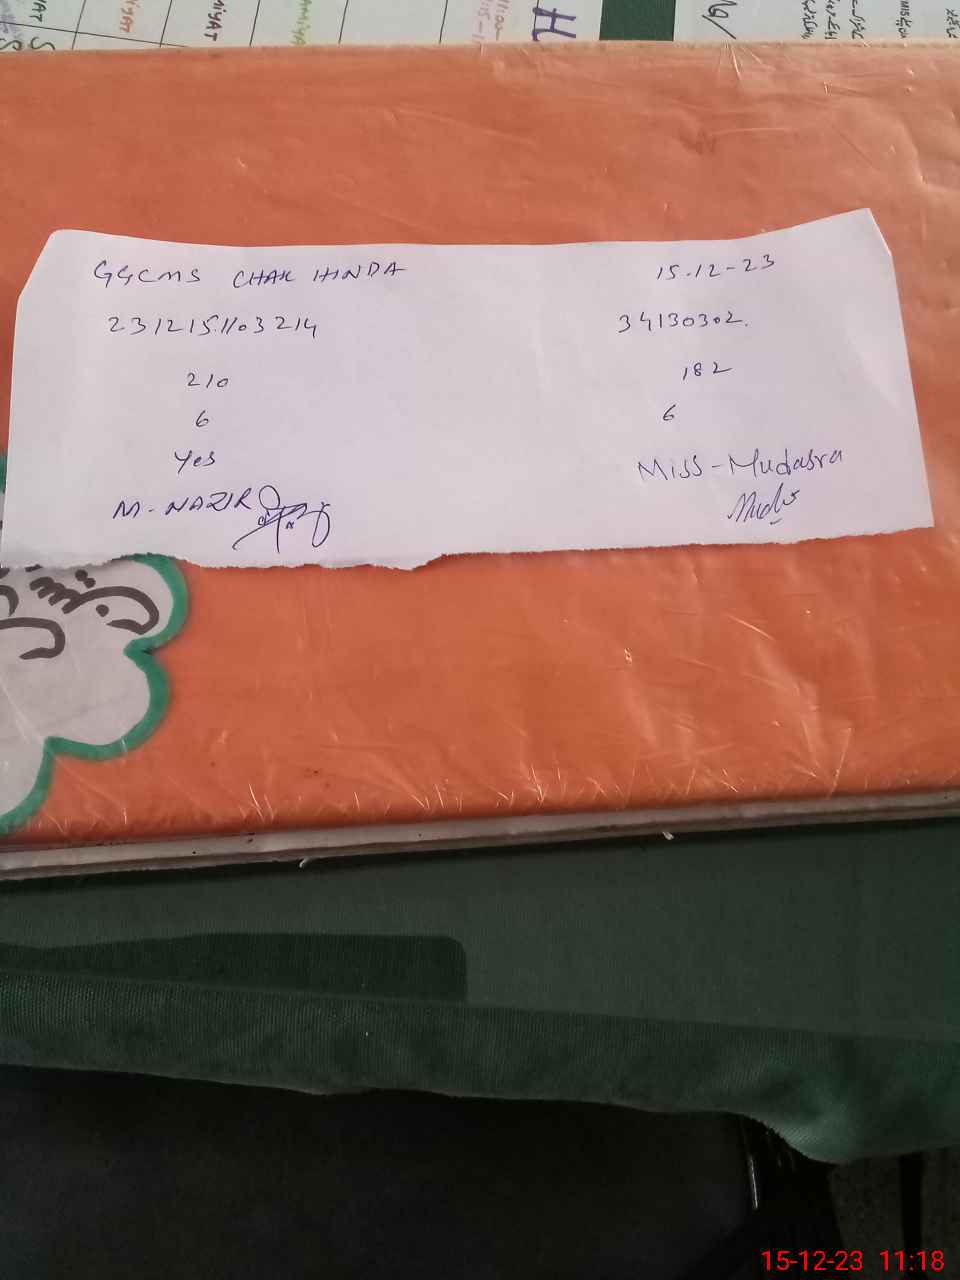 GGCMS CHAK HINDA 15.12-23
231215.1103214 34130302.
210 182
6 6
Yes Miss-Mudasra
M-NAZIR
15-12-23 11:18